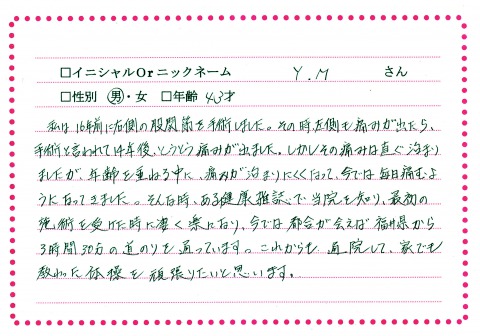 □イニシャルOrニックネーム Y.M さん
□性別 男・女 □年齢 43才
私は16年前に右側の股関節を手術しました。その時左側も痛みが出たら、
手術と言われて14年後、とうとう痛みが出ました。しかしその痛みは直ぐ治まり
ましたが、年齢を重ねる中に、痛みが治まりにくくなって、今では毎日痛むよ
うになってきました。そんな時、ある健康雑誌で当院を知り、最初の
施術を受けた時に凄く楽になり、今では都合が会えば福井県から
3時間30分の道のりを通っています。これからも通院して、家でも
教わった体操を頑張りたいと思います。